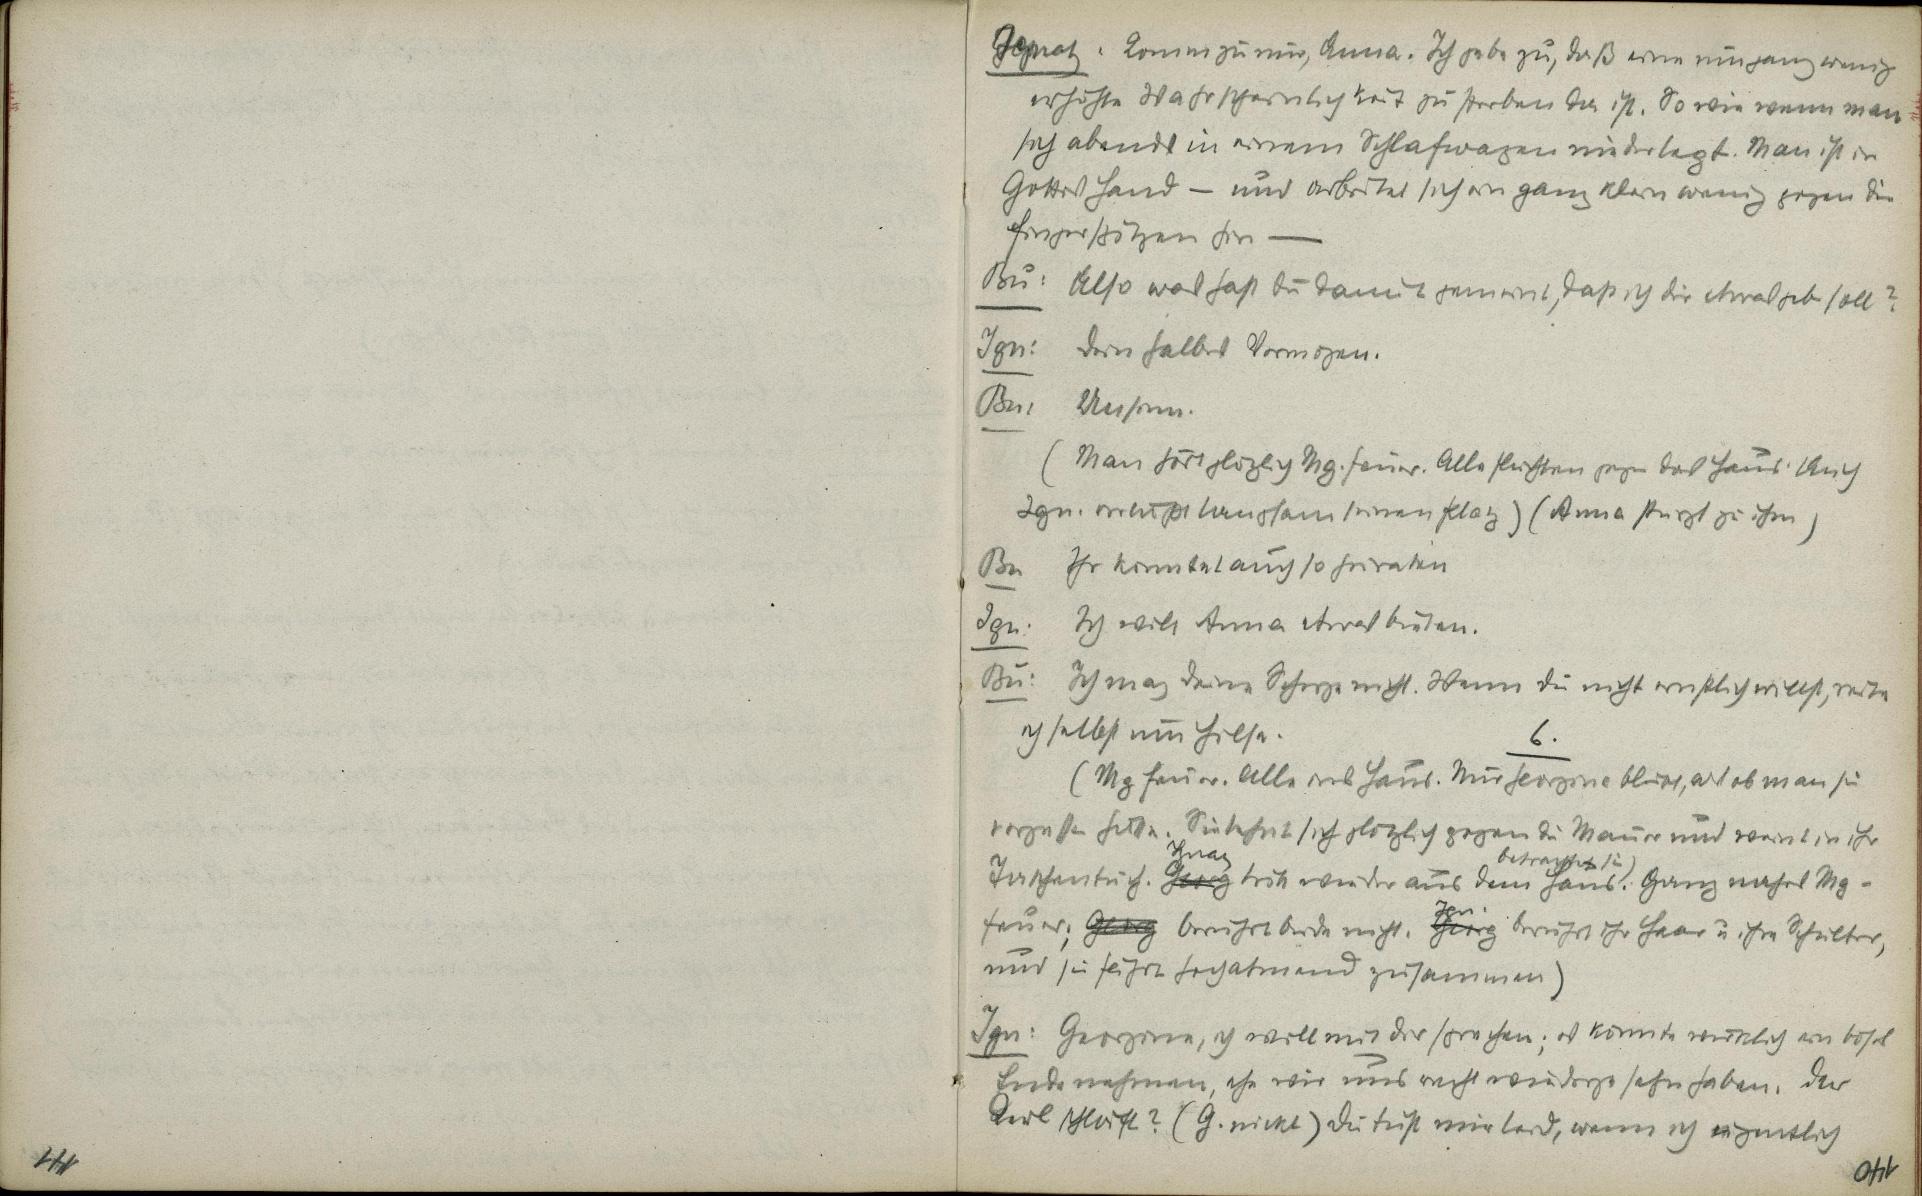 Ignaz: Komm zu mir, Anna. Ich gebe zu, daß eine nur ganz wenig
erhöhte Wahrscheinlichkeit zu sterben da ist. So wie wenn man
sich abends in einem Schlafwagen niederlegt. Man ist in
Gottes Hand — und arbeitet sich ein ganz klein wenig gegen die
Fingerspitzen hin —
Bu: Also was hast du damit gemeint, daß ich dir etwas geb soll?
Ign: Dein halbes Vermögen.
Bu: Unsinn.
(Man hört plötzlich Mg. feuer. Alle flüchten gegen das Haus. Auch
Ign. verläßt langsam seinen Platz) (Anna stürzt zu ihm)
Bu Ihr könntet auch so heiraten
Ign: Ich will Anna etwas bieten.
Bu: Ich mag deine Scherze nicht. Wenn du nicht ernstlich willst, reite
ich selbst um Hilfe.
6.
(Mg feuer. Alle ins Haus. Nur Georgine bleibt, als ob man sie
vergessen hätte. Sie lehnt sich plötzlich gegen die Mauer und weint in ihr
Ignaz betrachtet sie)
Taschentuch. Georg tritt wieder aus dem Haus. Ganz nahes Mg-
Ign.
feuer; Georg berührt beide nicht. Georg berührt ihr Haar u. ihre Schulter,
und sie fährt hochatmend zusammen)
Ign: Georgine, ich will mit dir sprechen; es könnte wirklich ein böses
Ende nehmen, ehe wir uns recht wiedergesehn haben. Der
Kerl schläft? (G. nickt) Du tust mir leid, wenn ich eigentlich
141
140